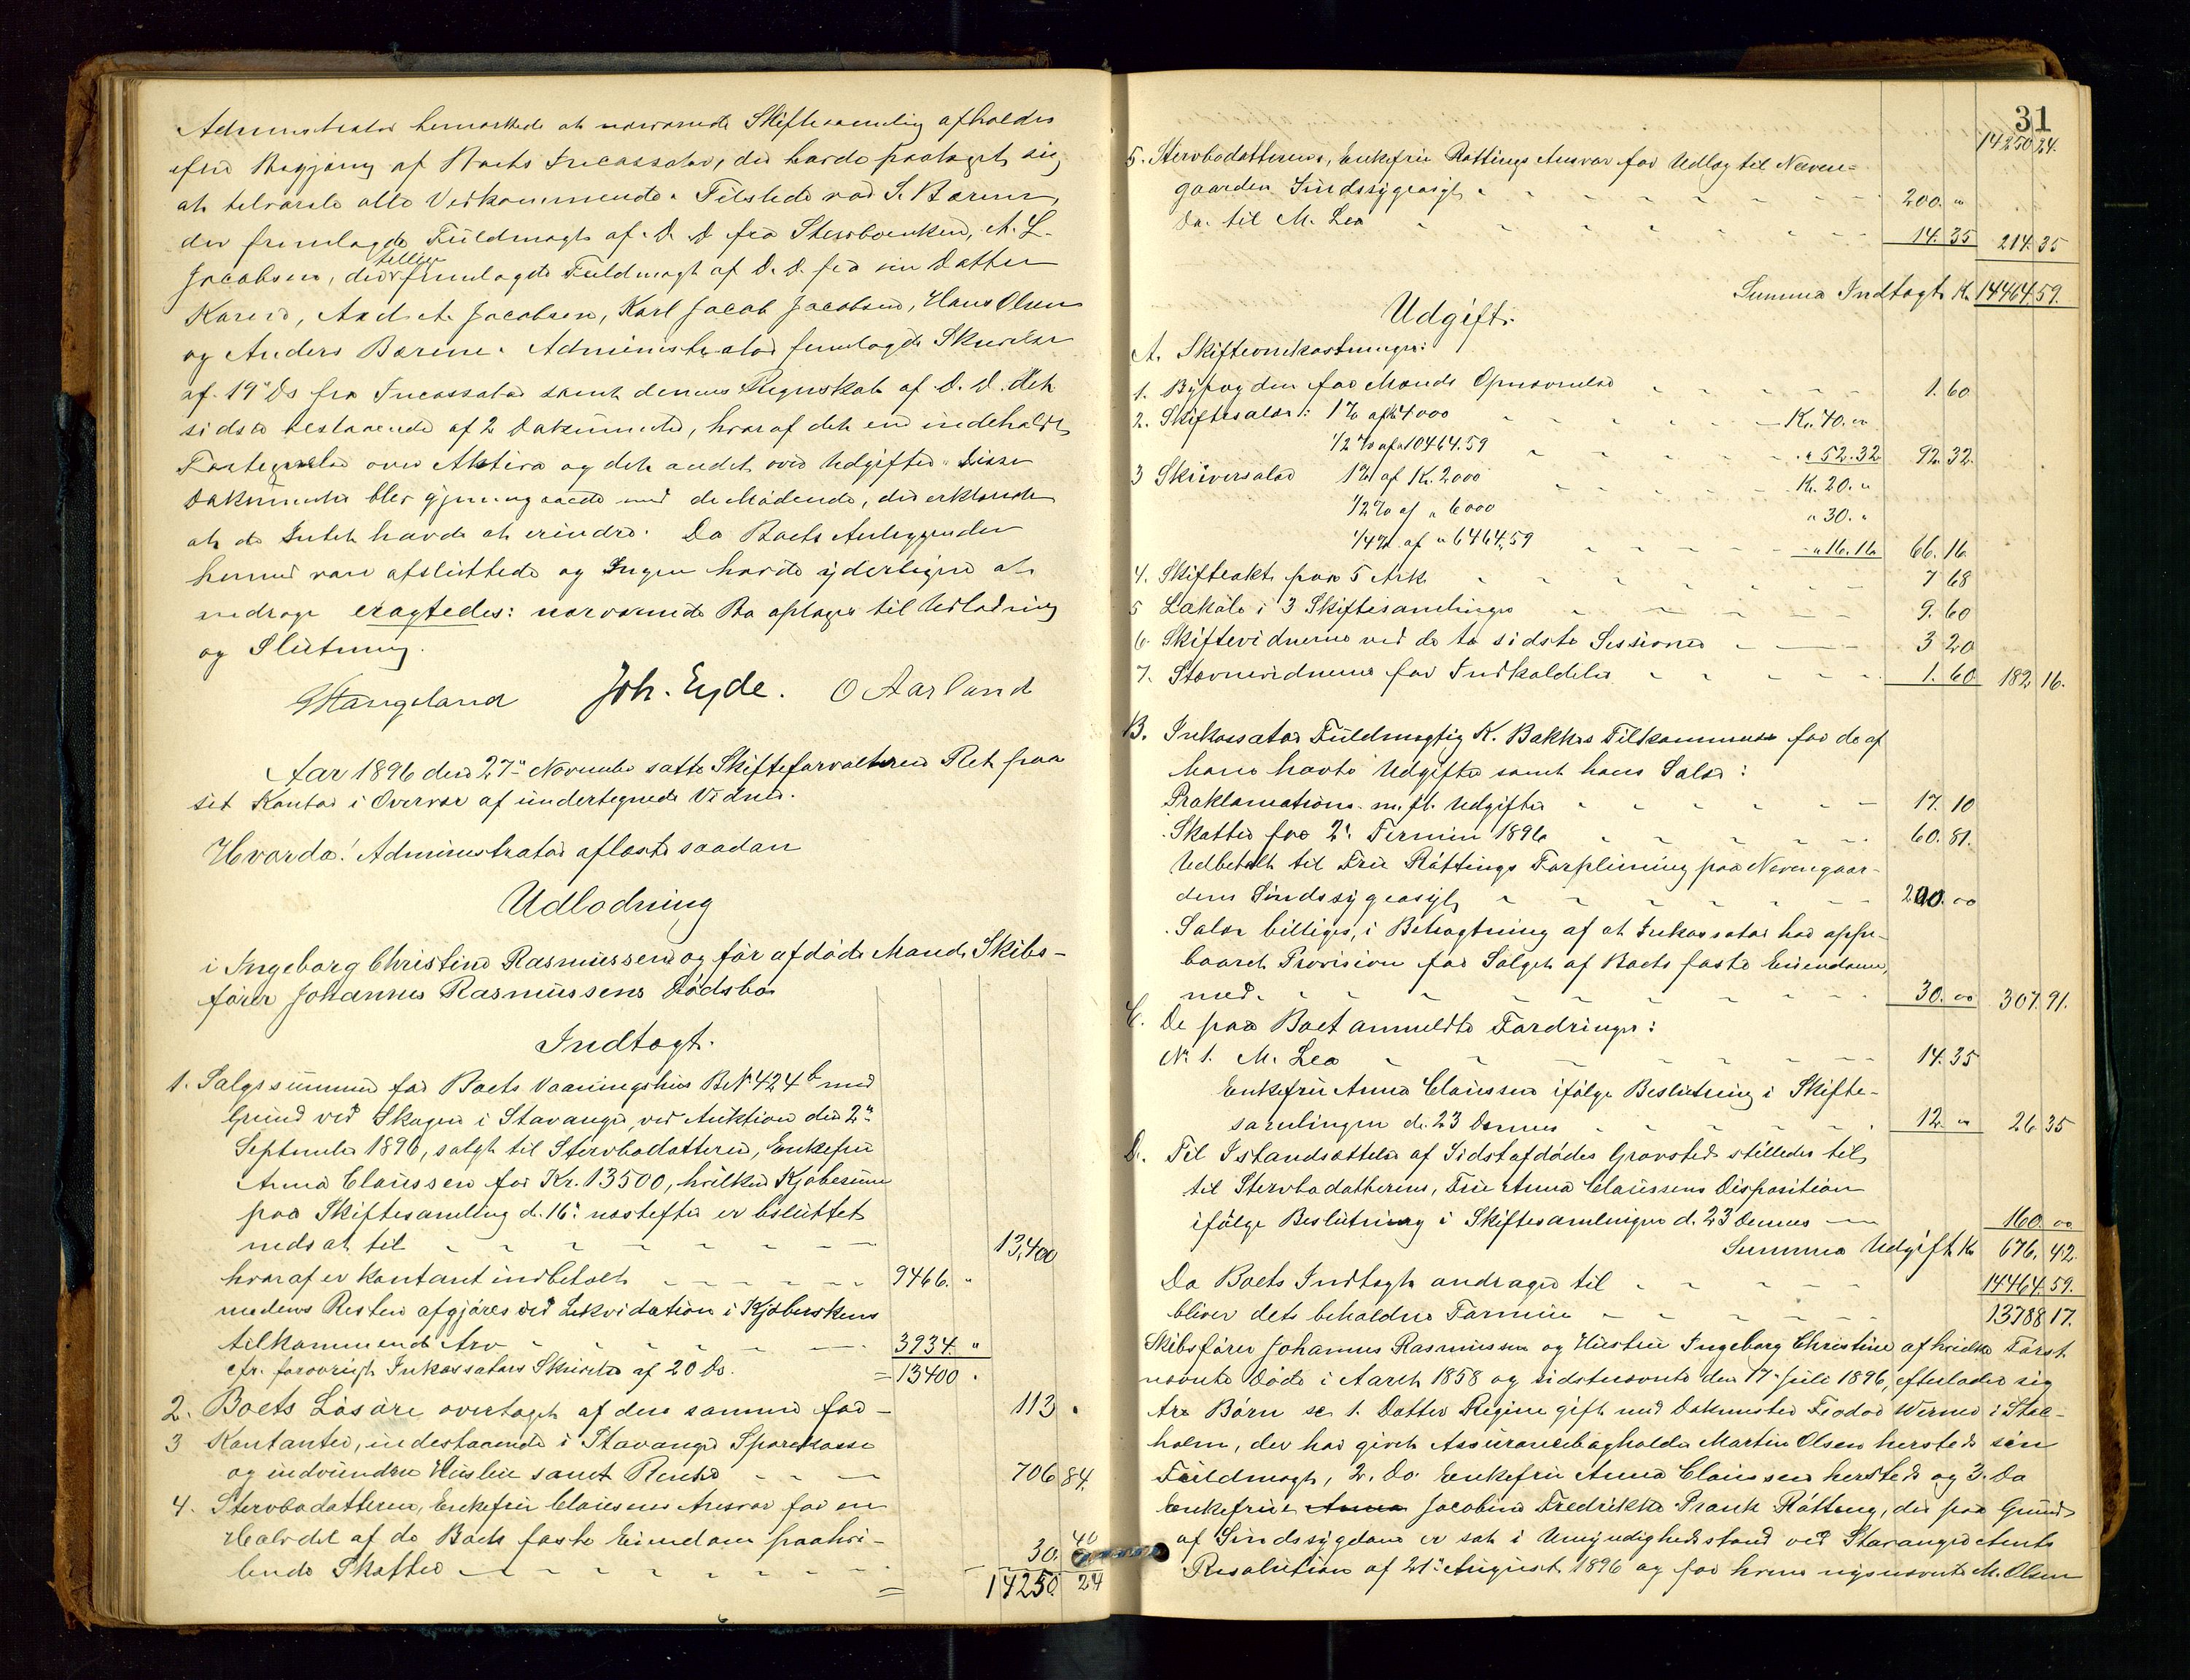 Administrator bemærkede at nærværende Skiftesamling afholdes
efter Begjæring af Boets Incassator, der havde paataget sig
at tilvarsle alle Vedkommende. Tilstede var S. Bærene,
der fremlagde Fuldmagt af D. D. fra Stervboenken, A. L.
Jacobsen, der tillige fremlagde Fuldmagt af D. D. fra sin Datter
Karen, And. A. Jacobsen, Karl Jacob Jacobsen, Hans Olsen
og Anders Bærene. Administrator fremlagde Skrivelse
af 19de Ds fra Incassator samt dennes Regnskab af D. D. det
sidste bestaaende af 2 Dokumenter, hvoraf det ene indeholdt
Fortegnelse over Aktiva og det andet over Udgifter. Disse
Dokumenter blev gjennemgaaede med de Mødende, der erklærede
at de Intet havde at erindre. Da Boets Anliggender
hermed vare afsluttede og Ingen havde yderligere at
nedrage eragtedes: nærværende Bo optages til Udlodning
og Slutning.
GHangeland Joh. Eyde. O Aarland
Aar 1896 den 27de November satte Skifteforvalteren Ret paa
sit Kontor i Overvær af undertegnede Vidner.
Hvorda: Administrator aflæste saadan
Udlodning
i Ingeborg Christine Rasmussens og før afdøde Mands Skibs-
fører Johannes Rasmussens Dødsbo
Indtægt.
1. Salgssummen for Boets Vaaningshus B.N. 424 b med
Grund ved Skagen i Stavanger, ved Auktion den 2den
September 1896, solgt til Stervbodatteren, Enkefru
Anna Claussen for Kr. 13500, hvilken Kjøbesum
paa Skiftesamling d. 16de næstefter er besluttet
nedsat til 13,400
hvoraf er kontant indbetalt 9466. "
medens Resten afgjøres ved Likvidation i Kjøberskens
tilkommende Arv 3934. "
cfr. forøvrigt Inkassators Skrivelse af 20 Ds. = 13400 .
2. Boets Løsøre overtaget af den samme for 113 .
3 Kontanter, indestaaende i Stavanger Sparekasse
og indvunden Husleie samt Renter 706 84.
4. Stervbodatteren, Enkefru Claussens Ansvar for en
Halvdel af de Boets faste Eiendom paahvi-
lende Skatter 30. 40
= 14250 24
31
14250 24.
5. Stervbodatterens, Enkefru Røttings Ansvar for Udlæg til Neven-
gaarden Sindssygeasyl 200. "
Do. til M. Lea 14. 35 214. 35
Summa Indtægt Kr. 14464 59.
Udgift.
A. Skifteomkostninger:
1. Byfogden for Mænds Opnævnelse 1. 60
2. Skiftesalær: 1% af 4000 Kr. 40. "
1/2 % af 10464.59 " 52.32 92. 32.
3 Skriversalær 1% af Kr. 2000 Kr. 20. "
1/2 % af " 6000 " 30. "
1/4 % af " 6464,59 " 16.16 66. 16.
4. Skifteakt paa 5 Ark 7 68
5 Lokale i 3 Skiftesamlinger 9. 60
6. Skiftevidnerne ved de to sidste Sessioner 3 20
7. Stævnevidnerne for Indkaldelse 1. 60 182 16.
B. Inkassator Fuldmægtig K. Bakkes Tilkommende for de af
ham havte Udgifter samt hans Salær:
Proklamations- m. fl. Udgifter 17. 10
Skatter for 2. Termin 1896 60. 81.
Udbetalt til Fru Røttings Forpleining paa Nevengaar-
dens Sindssygeasyl 200. 00
Salær billiges, i Betragtning af at Inkassator har oppe-
baaret Provision for Salget af Boets faste Eiendom,
med 30. 00 307. 91.
C. De paa Boet anmeldte Fordringer:
No 1. M. Lea 14. 35
Enkefru Anna Claussen ifølge Beslutning i Skifte-
samlingen d. 23 dennes 12. " 26 35
D. Til Istandsættelse af Sidstafdødes Gravsted stilledes til
til Stervbodatterens, Fru Anna Claussens Disposition
ifølge Beslutning i Skiftesamlingen d. 23 dennes 160. 00
Summa Udgift Kr 676. 42.
Da Boets Indtægt andrager til 14464 59.
bliver dets beholdne Formue 13788 17.
Skibsfører Johannes Rasmussen og Hustru Ingeborg Christine af hvilke Først-
nævnte døde i Aaret 1858 og sidstnævnte den 17. Juli 1896, efterlader sig
tre Børn sc 1. Datter Regine gift med Dokmester Feodor Werner i Stok-
holm, der har givet Assurancebogholder Martin Olsen hersteds sin
Fuldmagt, 2. Do. Enkefru Anna Claussen hersteds og 3. Do
Enkefrue Anna Jacobine Fredrikke Prank Røtting, der paa Grund
af Sindssygdom er sat i Umyndighedsstand ved Stavanger Amts
Resolution af 21de August 1896 og for hvem nysnævnte M. Olsen